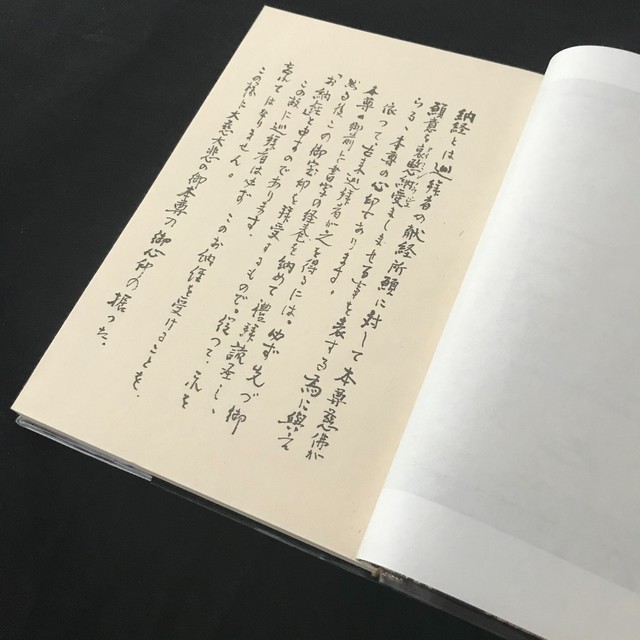 納経とは巡拝者の献経所願に対して本尊慈佛が
願意を照鑒納受ましませる事を表する為に與え
らる、本尊の心印であります。
依って古来巡拝者が之を得るには。必ず先づ御
本尊の御前に書写の経巻を納めて禮拝読誦し、
然る後この御宝印を拝受するもので。従って之を
「お納経」と申すのであります。
この故に巡拝者は必ず、このお納経を受けることを
忘れてはなりません。
この様に大慈大悲の御本尊の御心仲の據った。